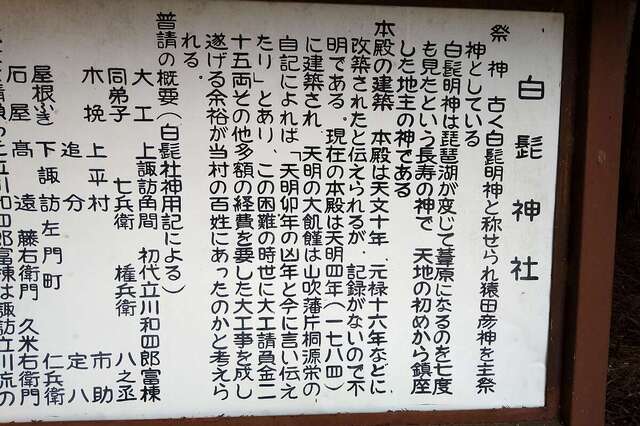 白髭神社
祭神　古く白髭明神と称せられ猿田彦神を主祭
神としている
白髭明神は琵琶湖が変じて葦原になるのを七度
も見たという長寿の神で　天地の初めから鎮座
した地主の神である
本殿の建築　本殿は天文十年、元禄十六年などに
改築されたと伝えられるが、記録がないので不
明である。現在の本殿は天明四年（一七八四）
に建築され、天明の大飢饉は山吹藩片桐源常の
自記によれば、「天明卯年の凶年と今に言い伝え
たり」とあり、この困難の時世に大工請負金二
十五両その他多額の経費を要した大工事を成し
遂げる余裕が当村の百姓にあったのかと考えら
れる。
普請の概要（白髭社神用記による）
大工　上諏訪角間　初代立川和四郎富棟
同弟子　七兵衛　権兵衛　八之丞
木挽　上平村　市助
追分　定八
屋根ふき　下諏訪左門町　仁兵衛
石屋　高遠　藤右衛門　久米右衛門
立川和四郎富棟は諏訪立川流の